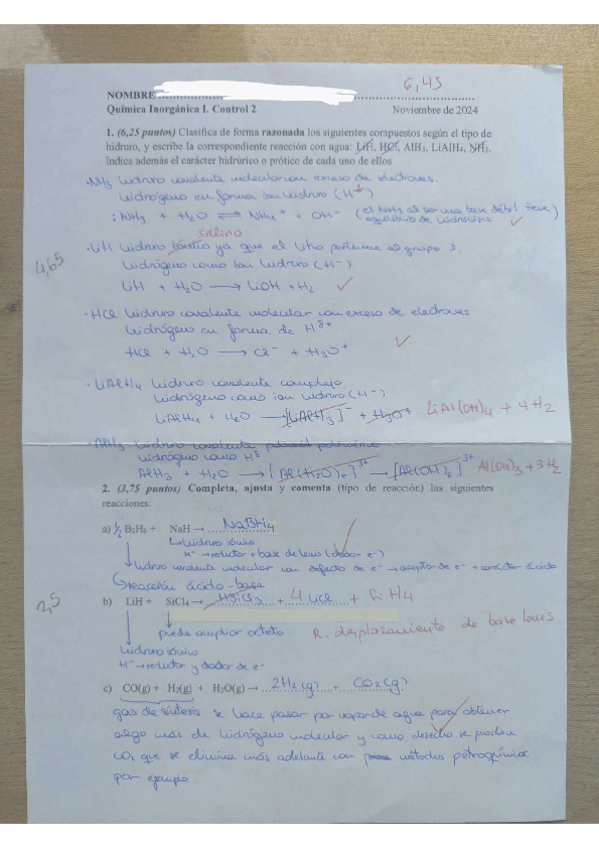 6,45
NOMBRE
Química Inorgánica I. Control 2. Noviembre de 2024
1. (6,25 puntos) Clasifica de forma razonada los siguientes compuestos según el tipo de
hidruro, y escribe la correspondiente reacción con agua: LiH, HCl, AlH3, LiAlH4, NH3.
Indica además el carácter hidrúrico o prótico de cada uno de ellos
·NH3 hidruro covalente molecular con exceso de electrones.
hidrógeno en forma ion hidruro (H+)
:NH3 + H2O ⇌ NH4+ + OH- (el NH3 al ser una base débil tiene)
equilibrio de hidrólisis
salino
4,65
· LiH hidruro iónico ya que el litio pertenece al grupo 1.
hidrógeno como ion hidruro (H-)
LiH + H2O → LiOH + H2
· HCl hidruro covalente molecular con exceso de electrones
hidrógeno en forma de Hδ+
HCl + H2O → Cl- + H3O+
· LiAlH4 hidruro covalente complejo
hidrógeno como ion hidruro (H-)
LiAlH4 + H2O → [LiAlH3]- + H3O+ LiAl(OH)4 + 4H2
· AlH3 hidruro covalente polimérico
hidrógeno como Hδ-
AlH3 + H2O → [Al(H2O)6]3+ → [Al(OH)6]3+ Al(OH)3 + 3H2
2. (3,75 puntos) Completa, ajusta y comenta (tipo de reacción) las siguientes
reacciones:
a) ½ B2H6 + NaH → NaBH4
hidruro iónico
H- → reductor + base de Lewis (dador e-)
hidruro covalente molecular con defecto de e- → aceptor de e- + carácter ácido
reacción ácido-base
2,5
b) LiH + SiCl4 → HSiCl3 + 4 LiCl + SiH4
puede ampliar octeto R. desplazamiento de base Lewis
hidruro iónico
H- → reductor y dador de e-
c) CO(g) + H2(g) + H2O(g) → 2H2(g) + CO2(g)
gas de síntesis se hace pasar por vapor de agua para obtener
algo más de hidrógeno molecular y como desecho se produce
CO2 que se elimina más adelante con métodos petroquímicos
por ejemplo